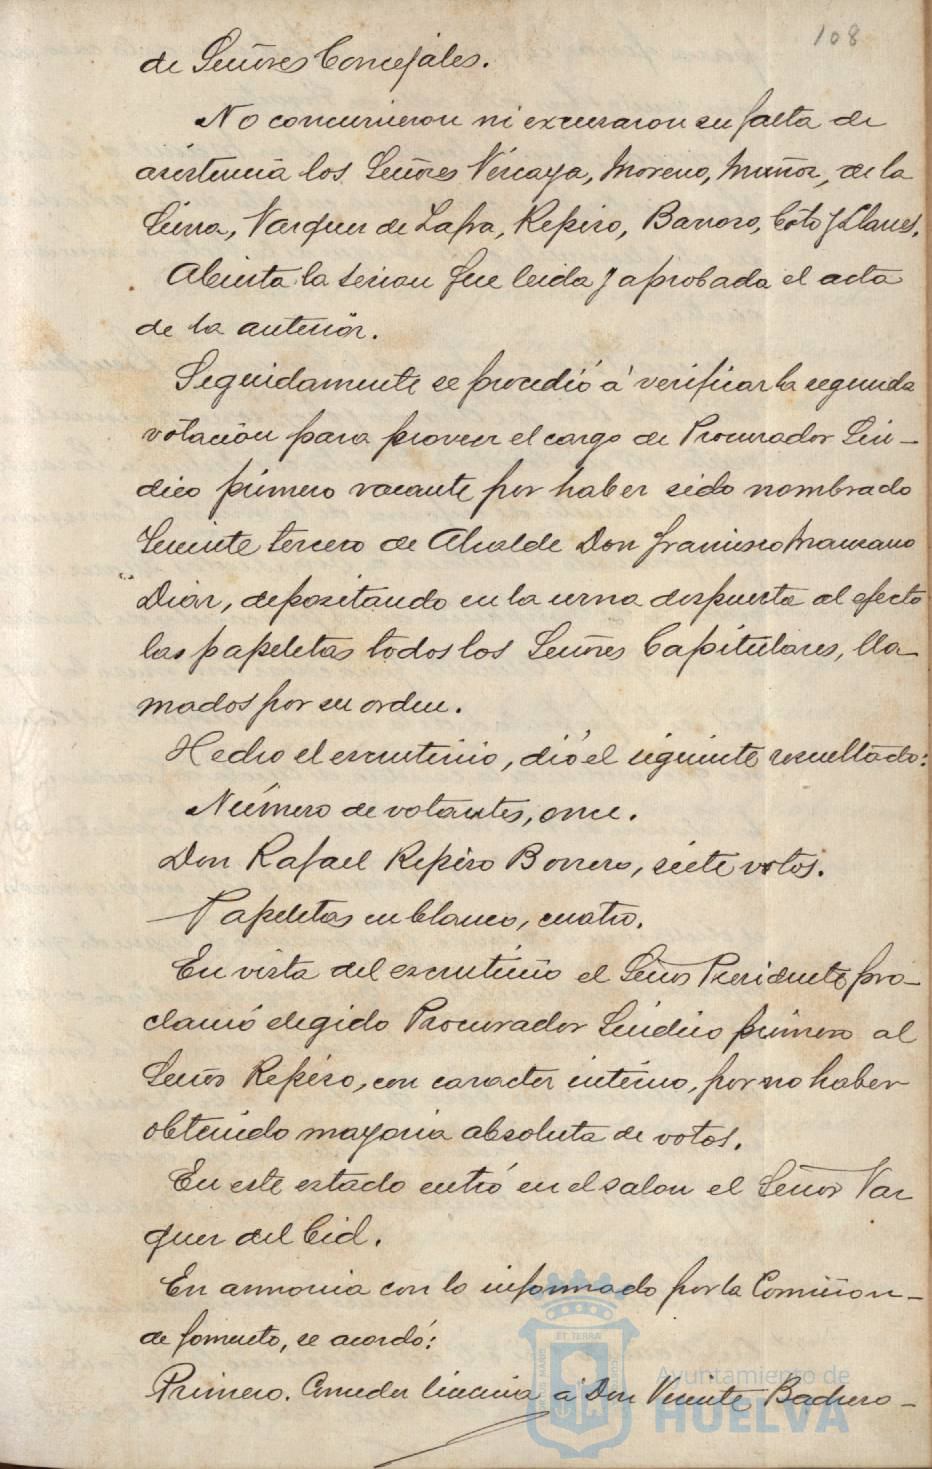 108
de Señores Concejales.
No concurrieron ni excusaron su falta de
asistencia los Señores Vizcaya, Moreno, Muñoz, de la
Sierra, Vazquez de Zafra, Repiso, Barroso, Coto y Llanes.
Abierta la sesion fue leida y aprobada el acta
de la anterior.
Seguidamente se procedió á verificar la segunda
votación para proveer el cargo de Procurador Sin-
dico primero vacante por haber sido nombrado
Teniente tercero de Alcalde Don Francisco Manzano
Diaz, depositando en la urna dispuesta al efecto
las papeletas todos los Señores Capitulares, lla-
mados por su orden.
Hecho el escrutinio, dió el siguiente resultado:
Número de votantes, once.
Don Rafael Repiso Borrero, siete votos.
Papeletas en blanco, cuatro.
En vista del escrutinio el Señor Presidente pro-
clamó elegido Procurador Sindico primero al
Señor Repiso, con caracter interino, por no haber
obtenido mayoria absoluta de votos.
En este estado entró en el salon el Señor Vaz
quez del Cid.
En armonia con lo informado por la Comision-
de fomento, se acordó:
Primero. Conceder licencia á Don Vicente Bachero-
Ayuntamiento de
HUELVA